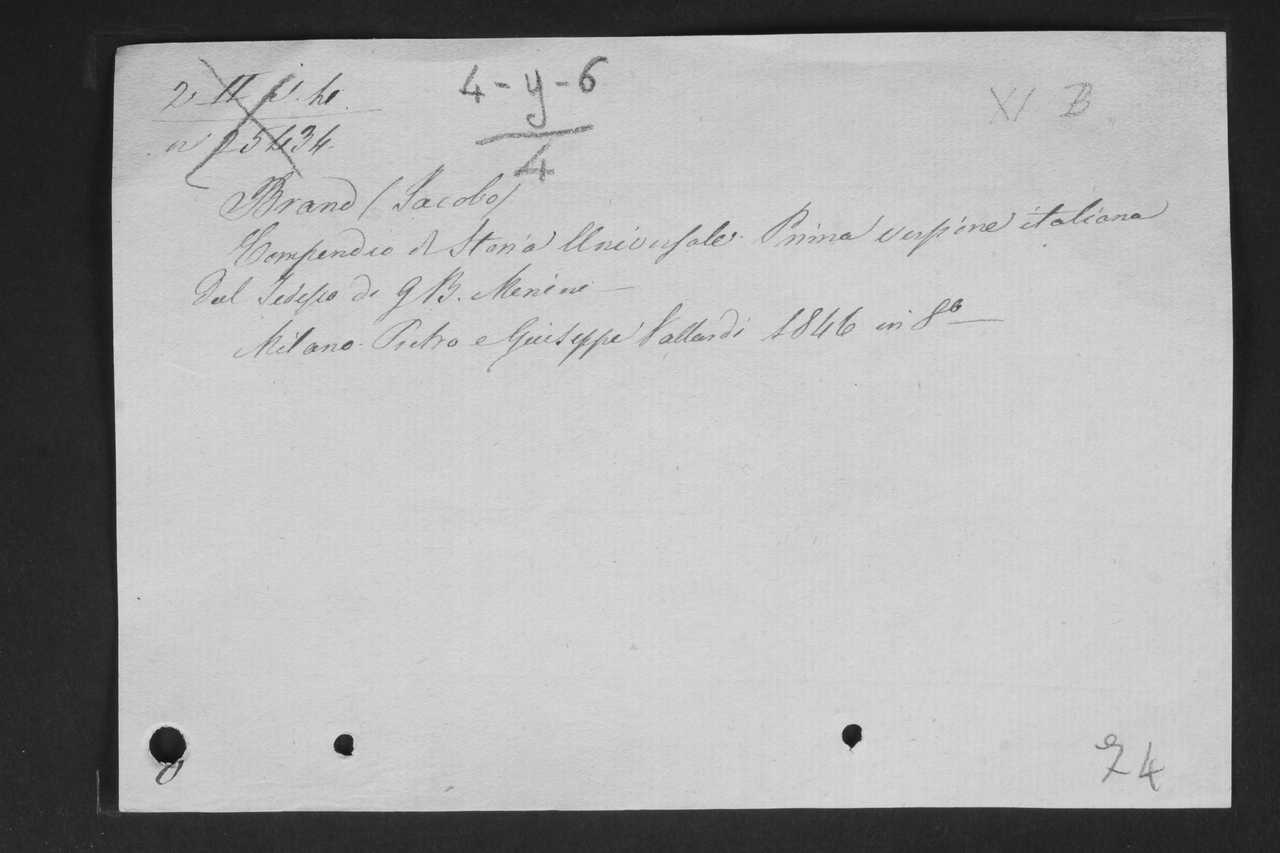 4-y-6
4
XI B
25434
Brand (Jacobo)
Compendio di Storia Universale. Prima versione italiana
dal Tedesco di G B. Menini
Milano. Pietro e Giuseppe Vallardi 1846 in 8º
74